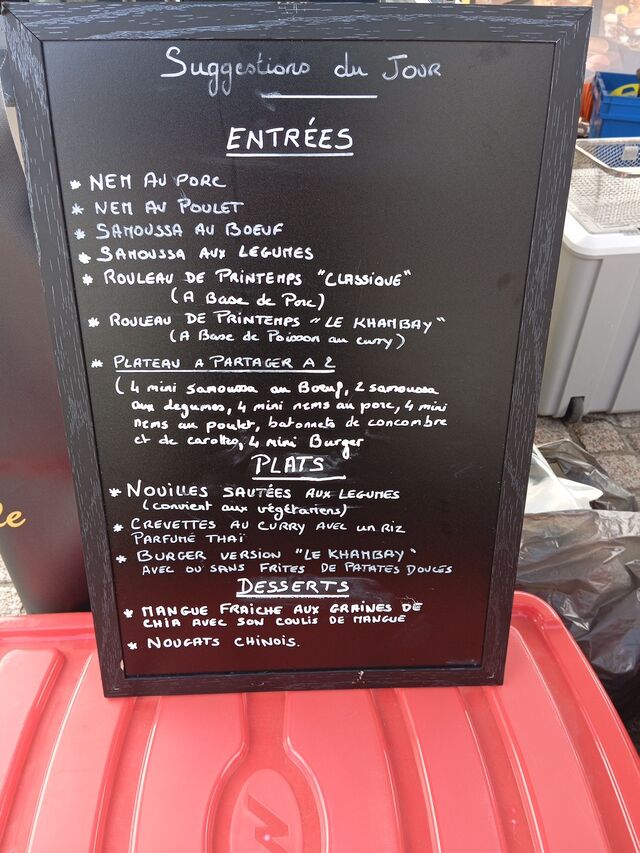 Suggestions du Jour
ENTRÉES
* NEM AU PORC
* NEM AU POULET
* SAMOUSSA AU BOEUF
* SAMOUSSA AUX LEGUMES
* ROULEAU DE PRINTEMPS "CLASSIQUE"
(A Base de Porc)
* ROULEAU DE PRINTEMPS "LE KHAMBAY"
(A Base de Poisson au curry)
* PLATEAU A PARTAGER A 2
(4 mini samoussa au Boeuf, 2 samoussa
aux legumes, 4 mini nems au porc, 4 mini
nems au poulet, batonnets de concombre
et de carottes, 4 mini Burger
PLATS
* NOUILLES SAUTÉES AUX LEGUMES
(convient aux végétariens)
* CREVETTES AU CURRY AVEC UN RIZ
PARFUMÉ THAÏ
* BURGER VERSION "LE KHAMBAY"
AVEC OU SANS FRITES DE PATATES DOUCES
DESSERTS
* MANGUE FRAICHE AUX GRAINES DE
CHIA AVEC SON COULIS DE MANGUE
* NOUGATS CHINOIS.
le